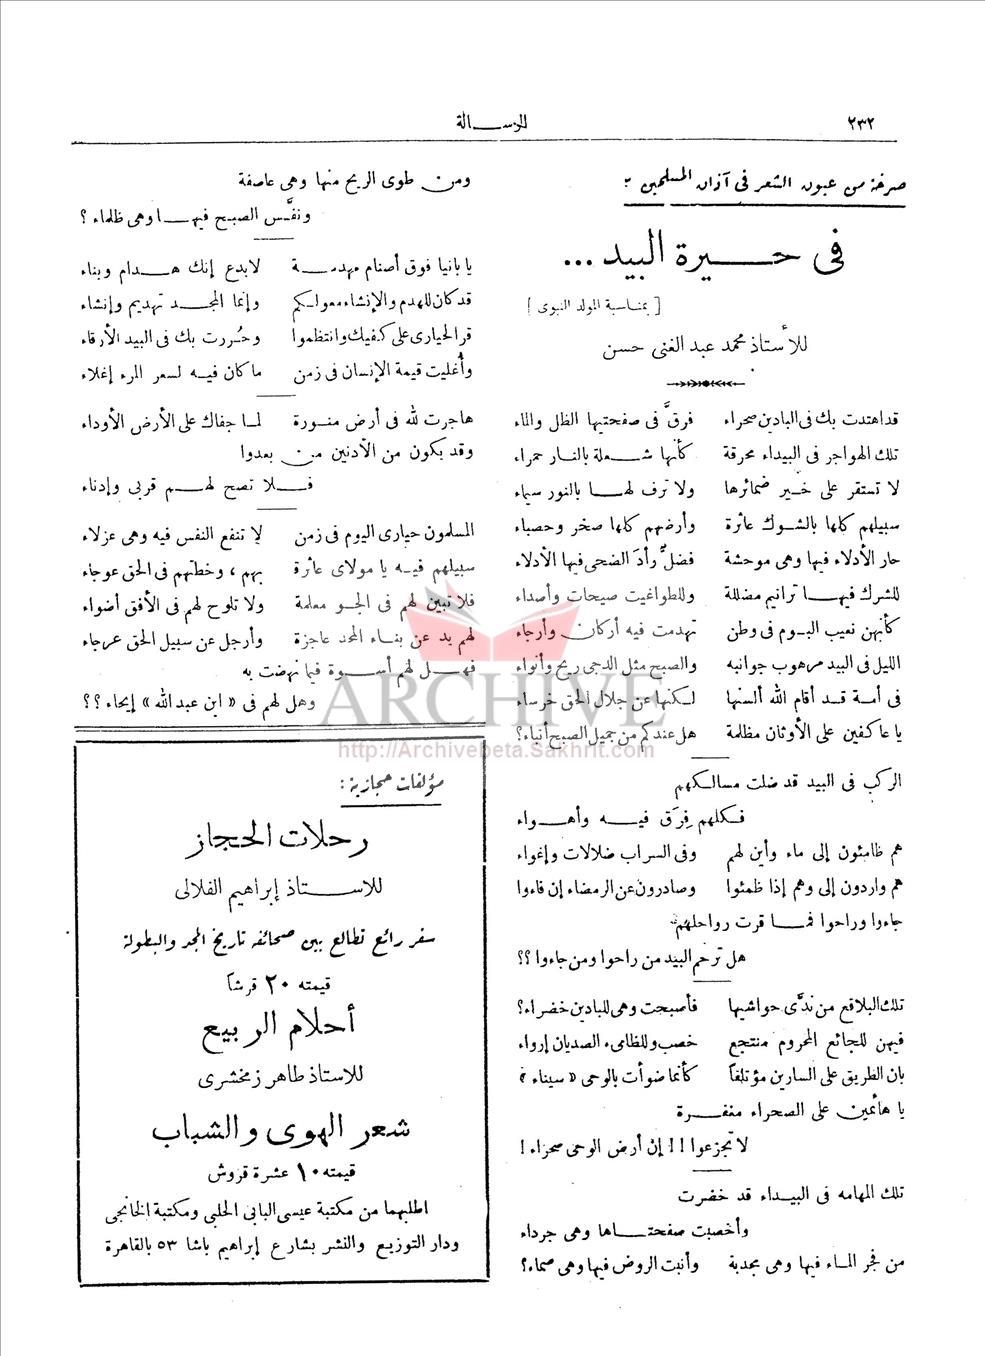 ٢٣٢
الرسالة
صرخة من عيون الشعر في آذان المسلمين :
في حيرة البيد ...
[ بمناسبة المولد النبوى ]
للأستاذ محمد عبد الغنى حسن
قد اهتدت بك فى البادين صحراء فرقَّ فى صفحتيها الظل والماء
تلك الهواجر فى البيداء محرقة كأنها شعلة بالنار حمراء
لا تستقر على خير ضمائرها ولا ترف لها بالنور سيماء
سبيلهم كلها بالشوك عاثرة وأرضهم كلها صخر وحصباء
حار الأدلاء فيها وهى موحشة فضلَّ رأدَ الضحى فيها الأدلاء
للشرك فيها ترانيم مضللة وللطواغيت صيحات وأصداء
كأنهن نعيب البوم فى وطن تهدمت فيه أركان وأرجاء
الليل فى البيد مرهوب جوانبه والصبح مثل الدجى ريح وأنواء
فى أمة قد أقام الله ألسنها لكنها عن جلال الحق خرساء
يا عاكفين على الأوثان مظلمة هل عندكم من جميل الصبح أنباء؟
الركب فى البيد قد ضلت مسالكهم
فكلهم فِرَق فيه وأهواء
هم ظامئون إلى ماء وأين لهم وفى السراب ضلالات وإغواء
هم واردون إلى وهم إذا ظمئوا وصادرون عن الرمضاء إن فاءوا
جاءوا وراحوا فما قرت رواحلهم
هل ترحم البيد من راحوا ومن جاءوا ؟؟
تلك البلاقع من ندَّى حواشيها فأصبحت وهى للبادين خضراء؟
فيهن للجائع المحروم منتجع خصب وللظامىء الصديان إرواء
بان الطريق على السارين مؤتلقاً كأنما ضوأت بالوحى « سيناء »
يا هائمين على الصحراء مغفرة
لا تجزعوا !! إن أرض الوحى صحراء !
تلك المهامه فى البيداء قد خضرت
وأخصبت صفحتاها وهى جرداء
من فجر الماء فيها وهى مجدبة وأنبت الروض فيها وهى صماء؟
ومن طوى الريح منها وهى عاصفة
ونفَّس الصبح فيها وهى ظلماء ؟
يا بانيا فوق أصنام مهدمة لا بدع إنك هدام وبناء
قد كان للهدم والإنشاء معولكم وإنما المجد تهديم وإنشاء
قر الحيارى على كفيك وانتظموا وحُررت بك فى البيد الأرقاء
وأغليت قيمة الإنسان فى زمن ما كان فيه لسعر المرء إغلاء
هاجرت لله فى أرض منورة لما جفاك على الأرض الأوداء
وقد يكون من الأدنين من بعدوا
فلا تصح لهم قربى وإدناء
المسلمون حيارى اليوم فى زمن لا تنفع النفس فيه وهى عزلاء
سبيلهم فيه يا مولاى عاثرة بهم ، وخطتهم فى الحق عوجاء
فلا تبين لهم فى الجو معلمة ولا تلوح لهم فى الأفق أضواء
لهم يد عن بناء المجد عاجزة وأرجل عن سبيل الحق عرجاء
فهل لهم أسوة فيما نهضت به
وهل لهم فى « ابن عبد الله » إيحاء ؟؟
مؤلفات حجازية :
رحلات الحجاز
للاستاذ إبراهيم الفلالى
سفر رائع تطالع بين صحائفه تاريخ المجد والبطولة
قيمته ٢٠ قرشاً
أحلام الربيع
للاستاذ طاهر زمخشرى
شعر الهوى والشباب
قيمته ١٠ عشرة قروش
اطلبهما من مكتبة عيسى البابى الحلبى ومكتبة الخانجى
ودار التوزيع والنشر بشارع إبراهيم باشا ٥٣ بالقاهرة
ARCHIVE
http://Archivebeta.Sakhrit.com